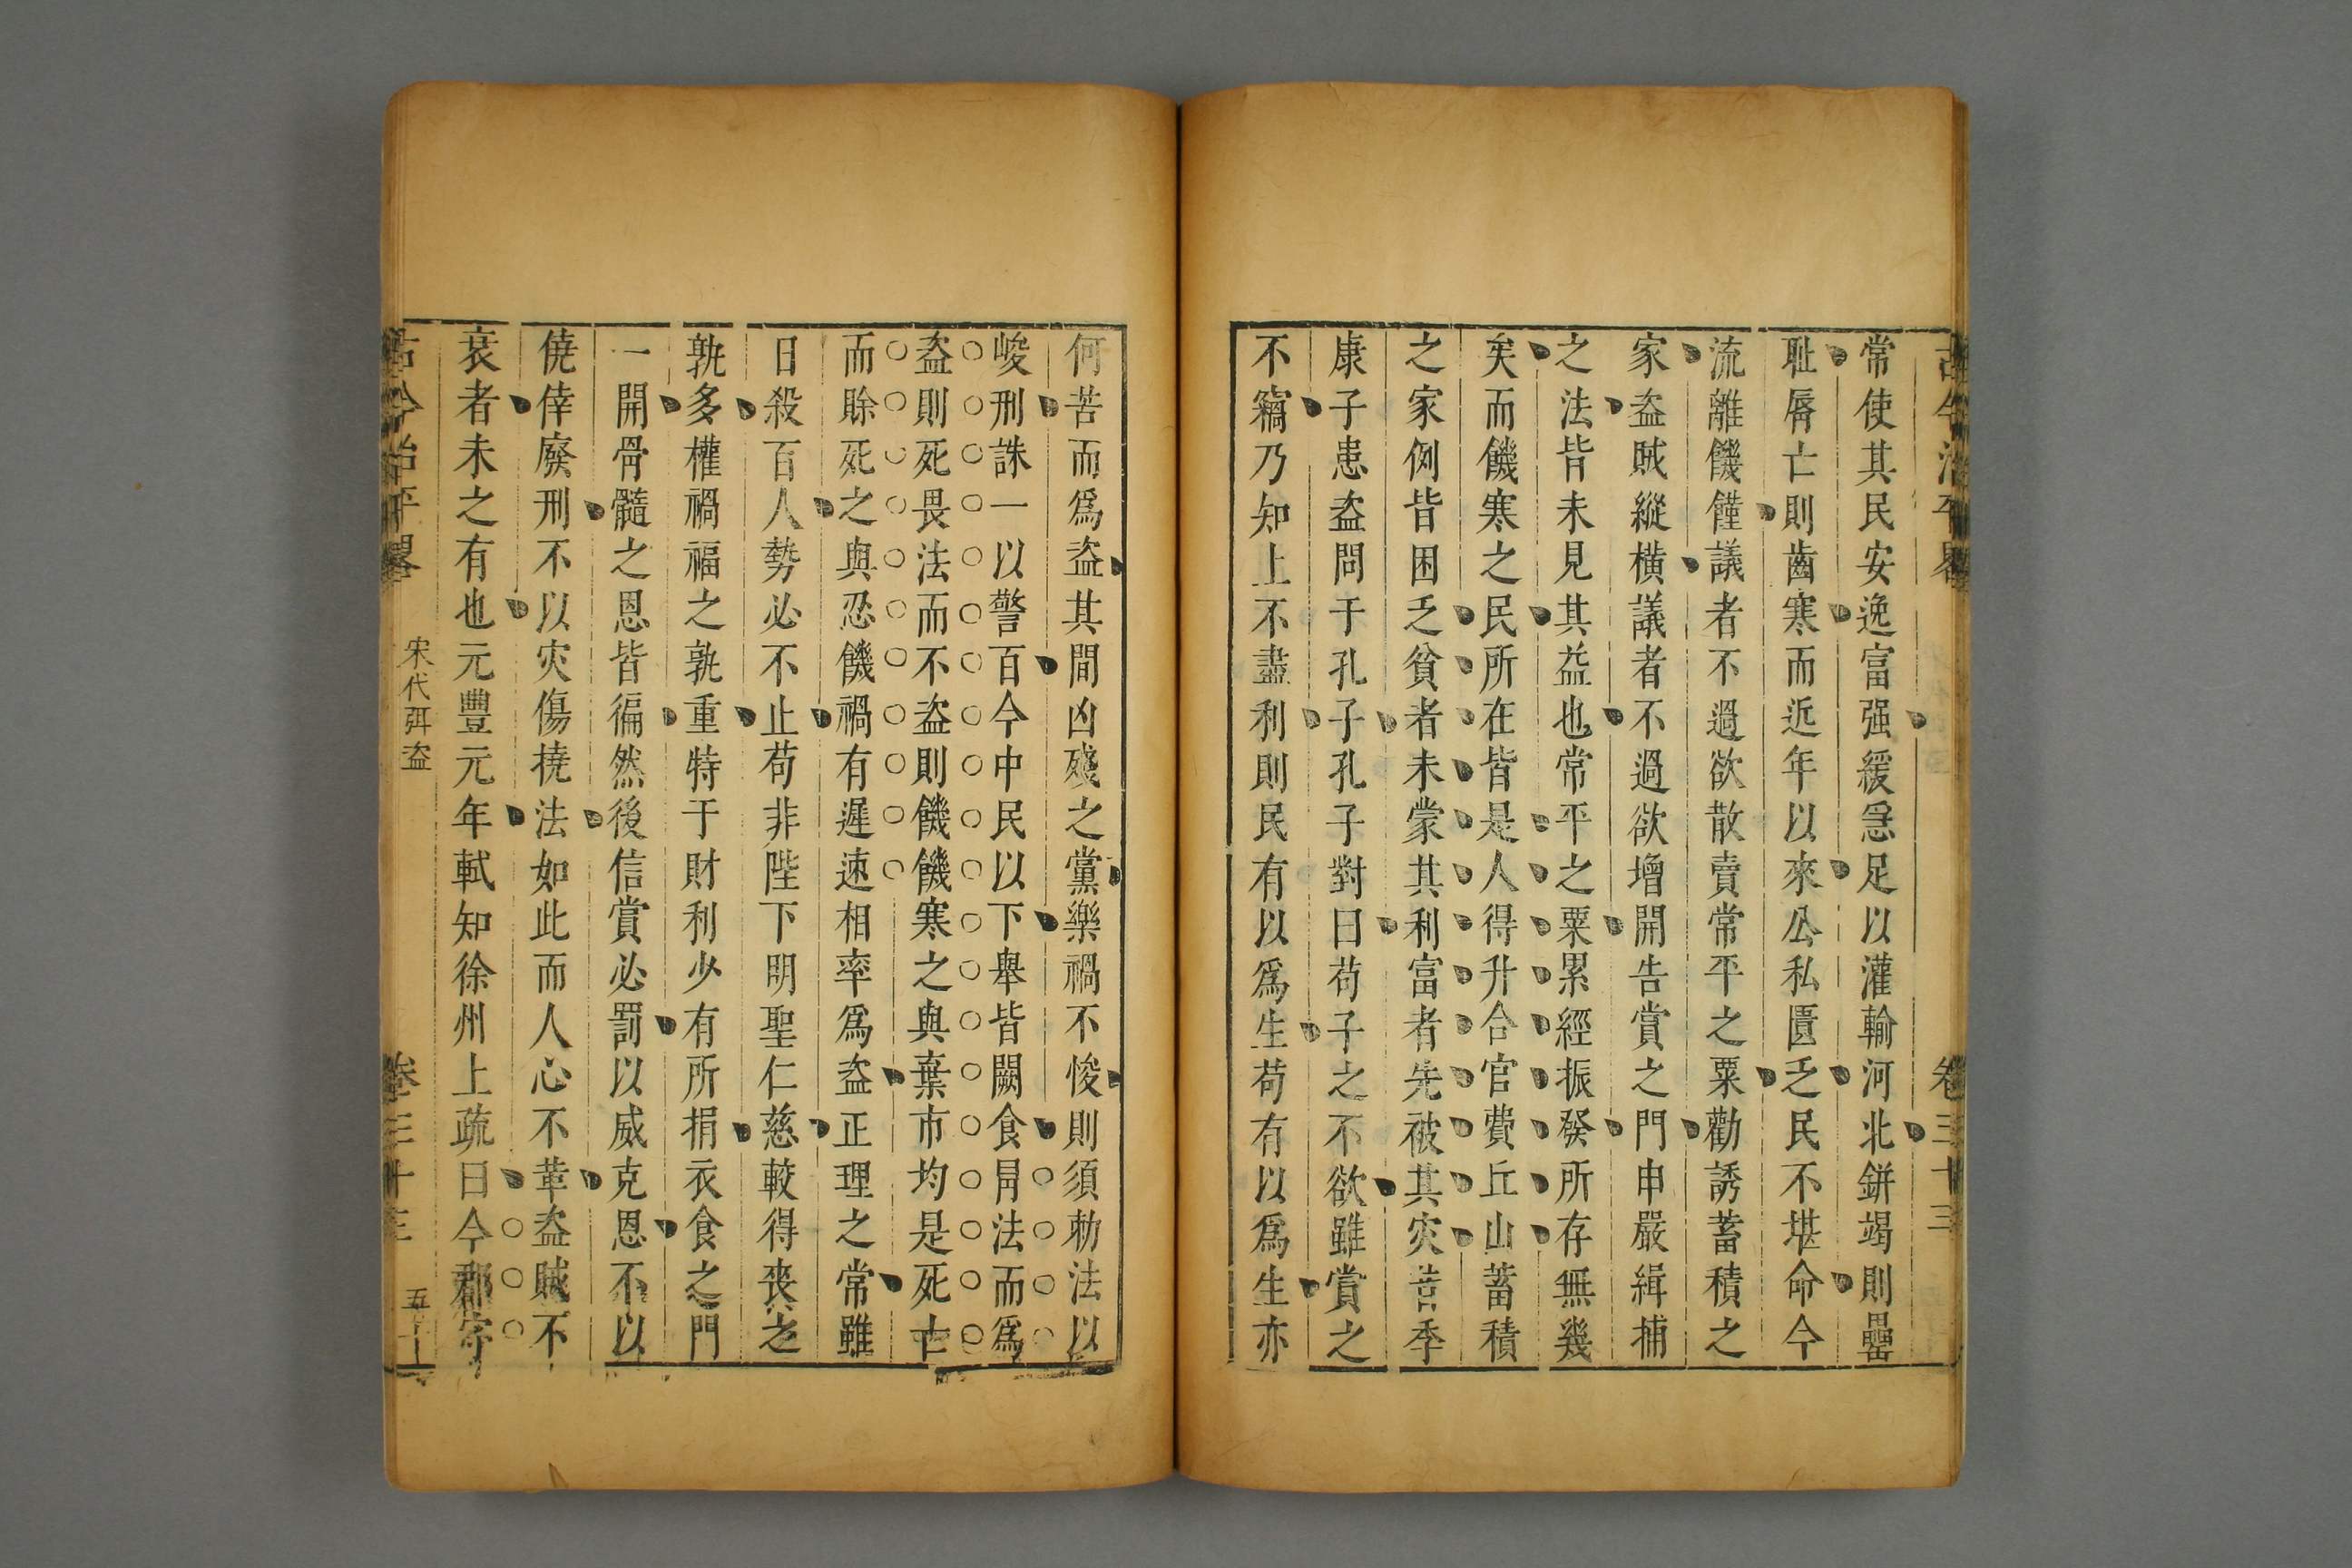 古今治平畧 卷三十三
常使其民安逸富强緩急足以灌輸河北缾竭則罍
耻唇亡則齒寒而近年以來公私匱乏民不堪命今
流離饑饉議者不過欲散賣常平之粟勸誘蓄積之
家盗賊縱横議者不過欲增開告賞之門申嚴緝捕
之法皆未見其益也常平之粟累經振發所存無幾
矣而饑寒之民所在皆是人得升合官費丘山蓄積
之家例皆困乏貧者未蒙其利富者先被其灾昔季
康子患盗問于孔子孔子對曰苟子之不欲雖賞之
不竊乃知上不盡利則民有以爲生苟有以爲生亦
何苦而爲盗其間凶殘之黨樂禍不悛則須勑法以
峻刑誅一以警百今中民以下舉皆闕食冐法而爲
盗則死畏法而不盗則饑饑寒之與棄市均是死亡
而賖死之與忍饑禍有遲速相率爲盗正理之常雖
日殺百人勢必不止苟非陛下明聖仁慈較得丧之
孰多權禍福之孰重特于財利少有所捐衣食之門
一開骨髓之恩皆徧然後信賞必罰以威克恩不以
僥倖廢刑不以灾傷撓法如此而人心不革盗賊不
衰者未之有也元豐元年軾知徐州上疏曰今郡守
古今治平畧 宋代弭盗 卷三十三